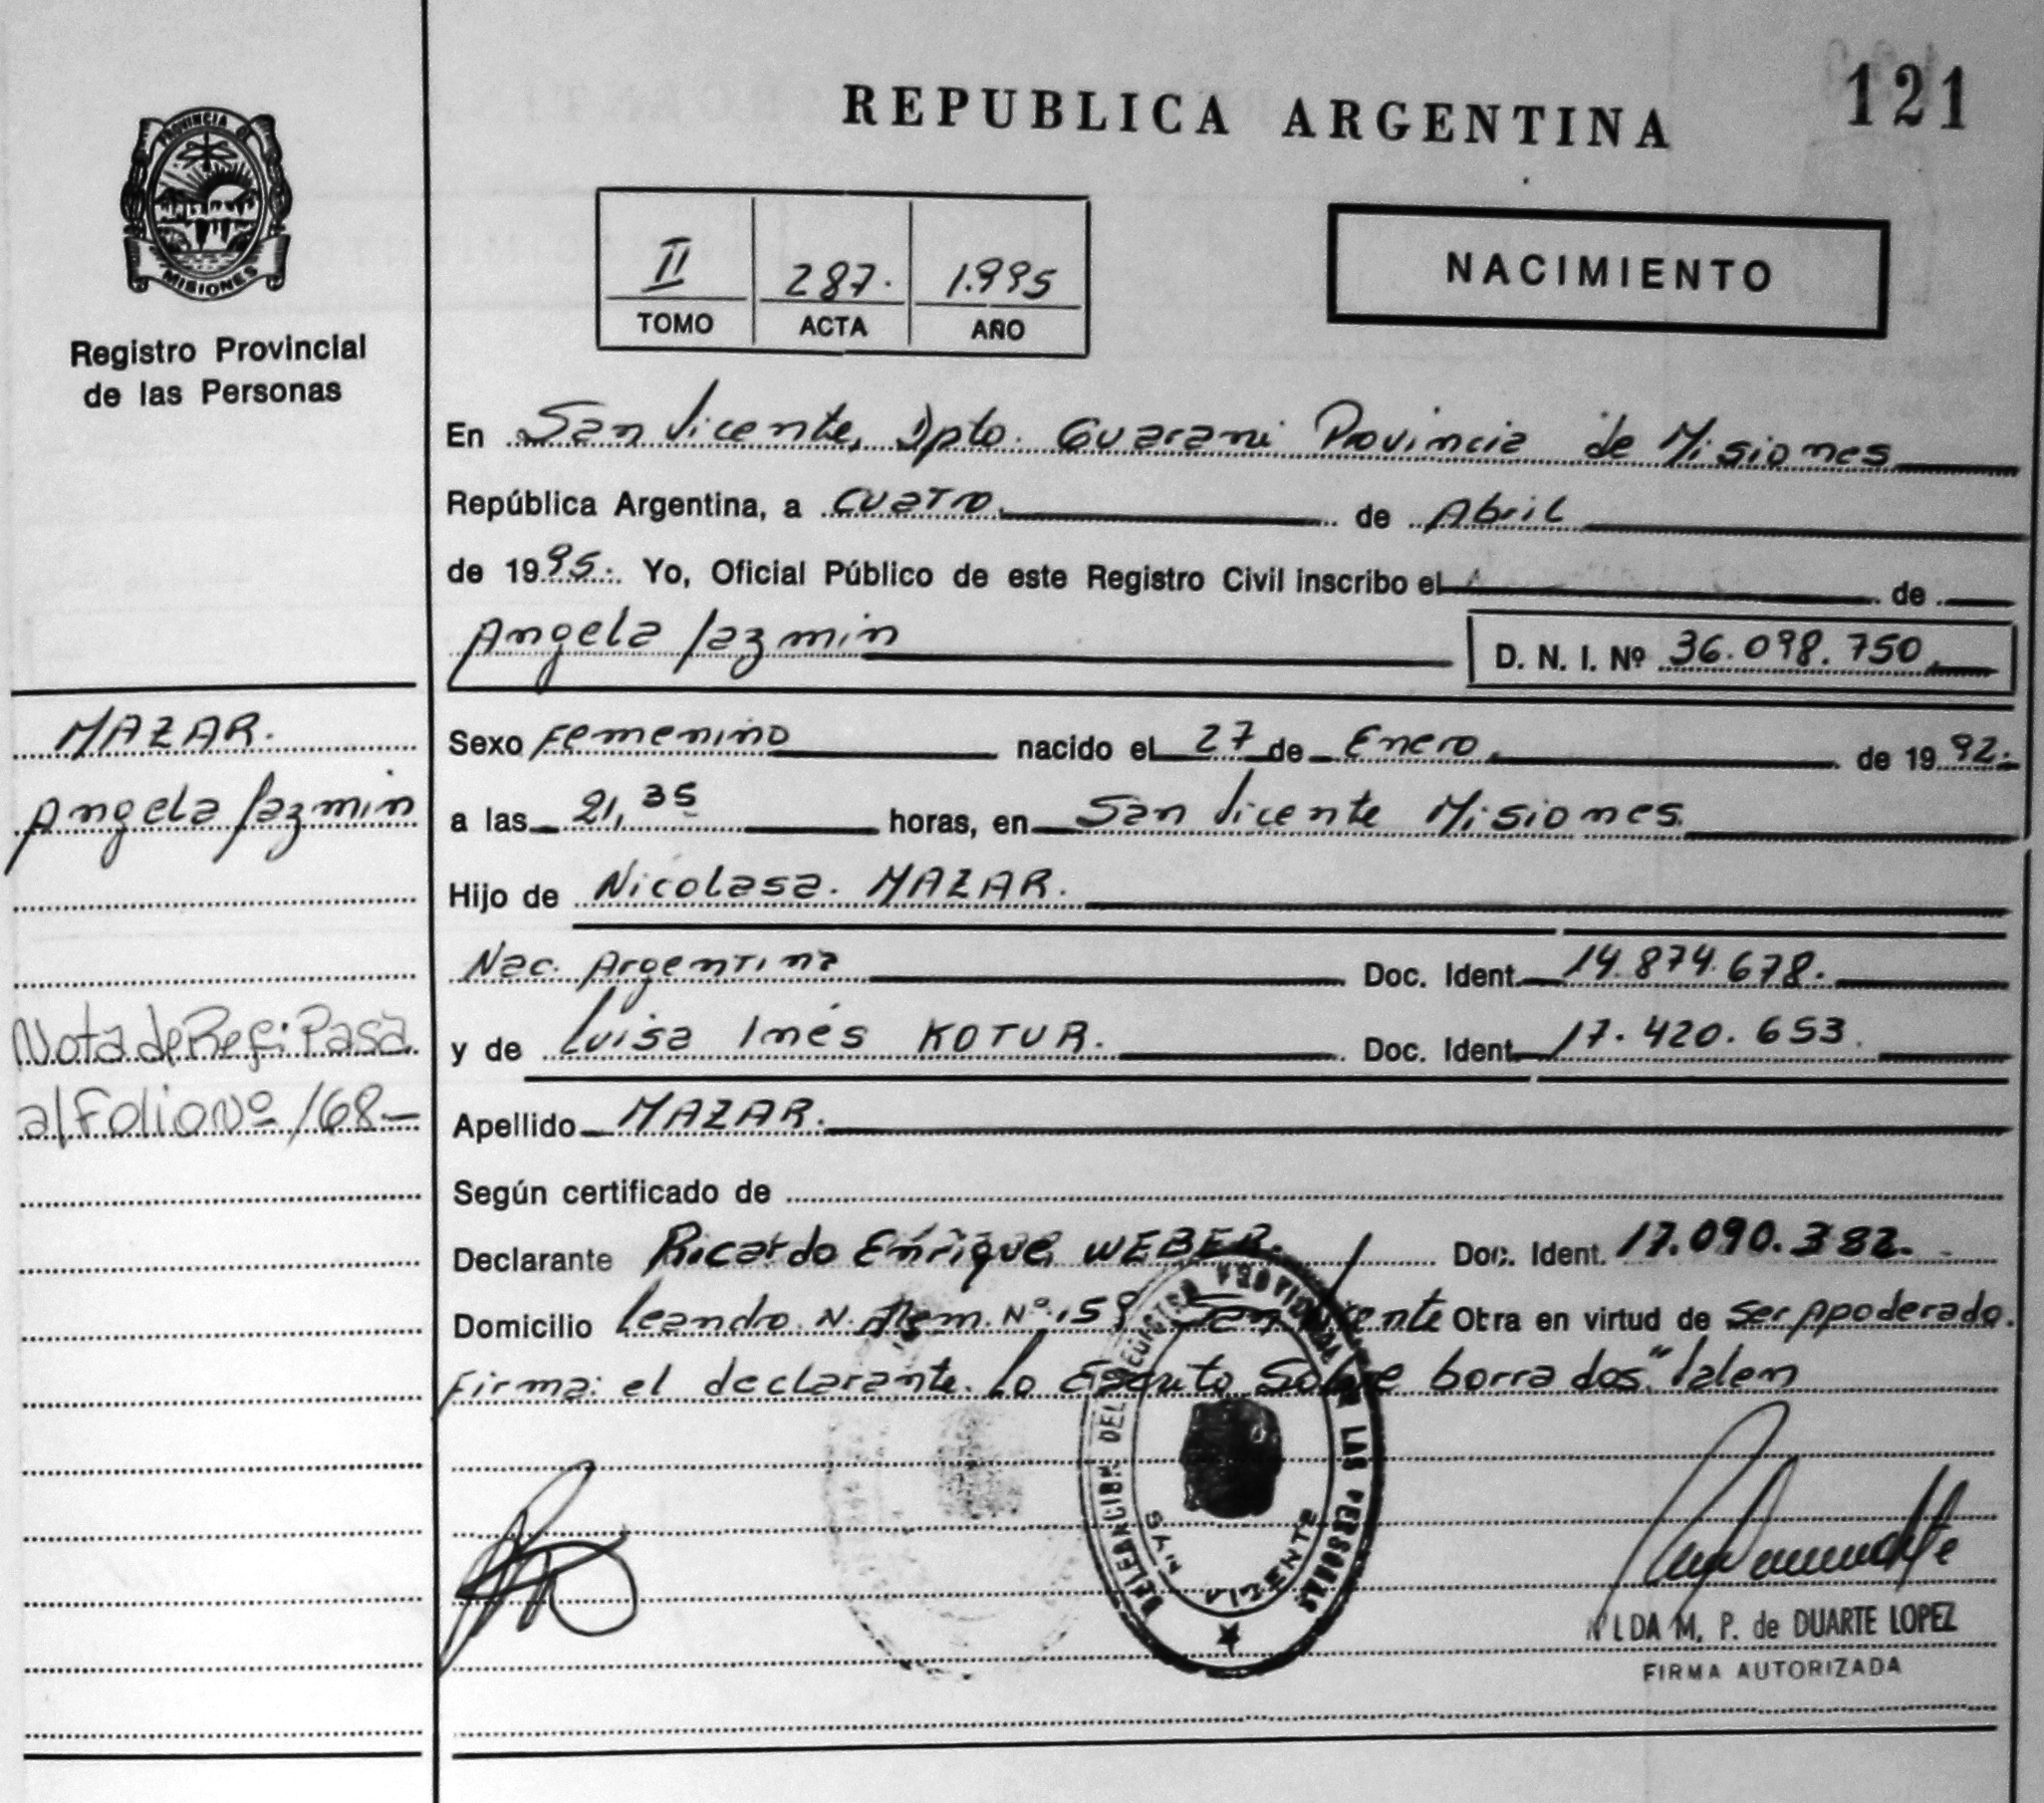 REPUBLICA ARGENTINA
121
PROVINCIA DE
MISIONES
Registro Provincial
de las Personas
II 287. 1.995
TOMO ACTA AÑO
NACIMIENTO
En San Vicente, Dpto. Guarani Provincia de Misiones
República Argentina, a cuatro. de Abril
de 1995. Yo, Oficial Público de este Registro Civil inscribo el de
Angela Jazmin D. N. I. Nº 36.098.750.
MAZAR.
Angela Jazmin
Nota de Ref: Pasa
al Folio Nº 168-
Sexo Femenino nacido el 27 de Enero. de 1992.
a las 21,35 horas, en San Vicente Misiones.
Hijo de Nicolasa. MAZAR.
Nac. Argentina Doc. Ident. 14.874.678.
y de Luisa Inés KOTUR. Doc. Ident. 17.420.653.
Apellido MAZAR.
Según certificado de
Declarante Ricardo Enrique WEBER. Doc. Ident. 17.090.382.
Domicilio Leandro. N. Alem. Nº 159 San Vicente Otra en virtud de ser Apoderado.
Firma: el declarante. Lo Escrito Sobre borrados" Valen
DELEGACION DEL REGISTRO PROVINCIAL DE LAS PERSONAS
SAN VICENTE
M. P. de DUARTE LOPEZ
FIRMA AUTORIZADA